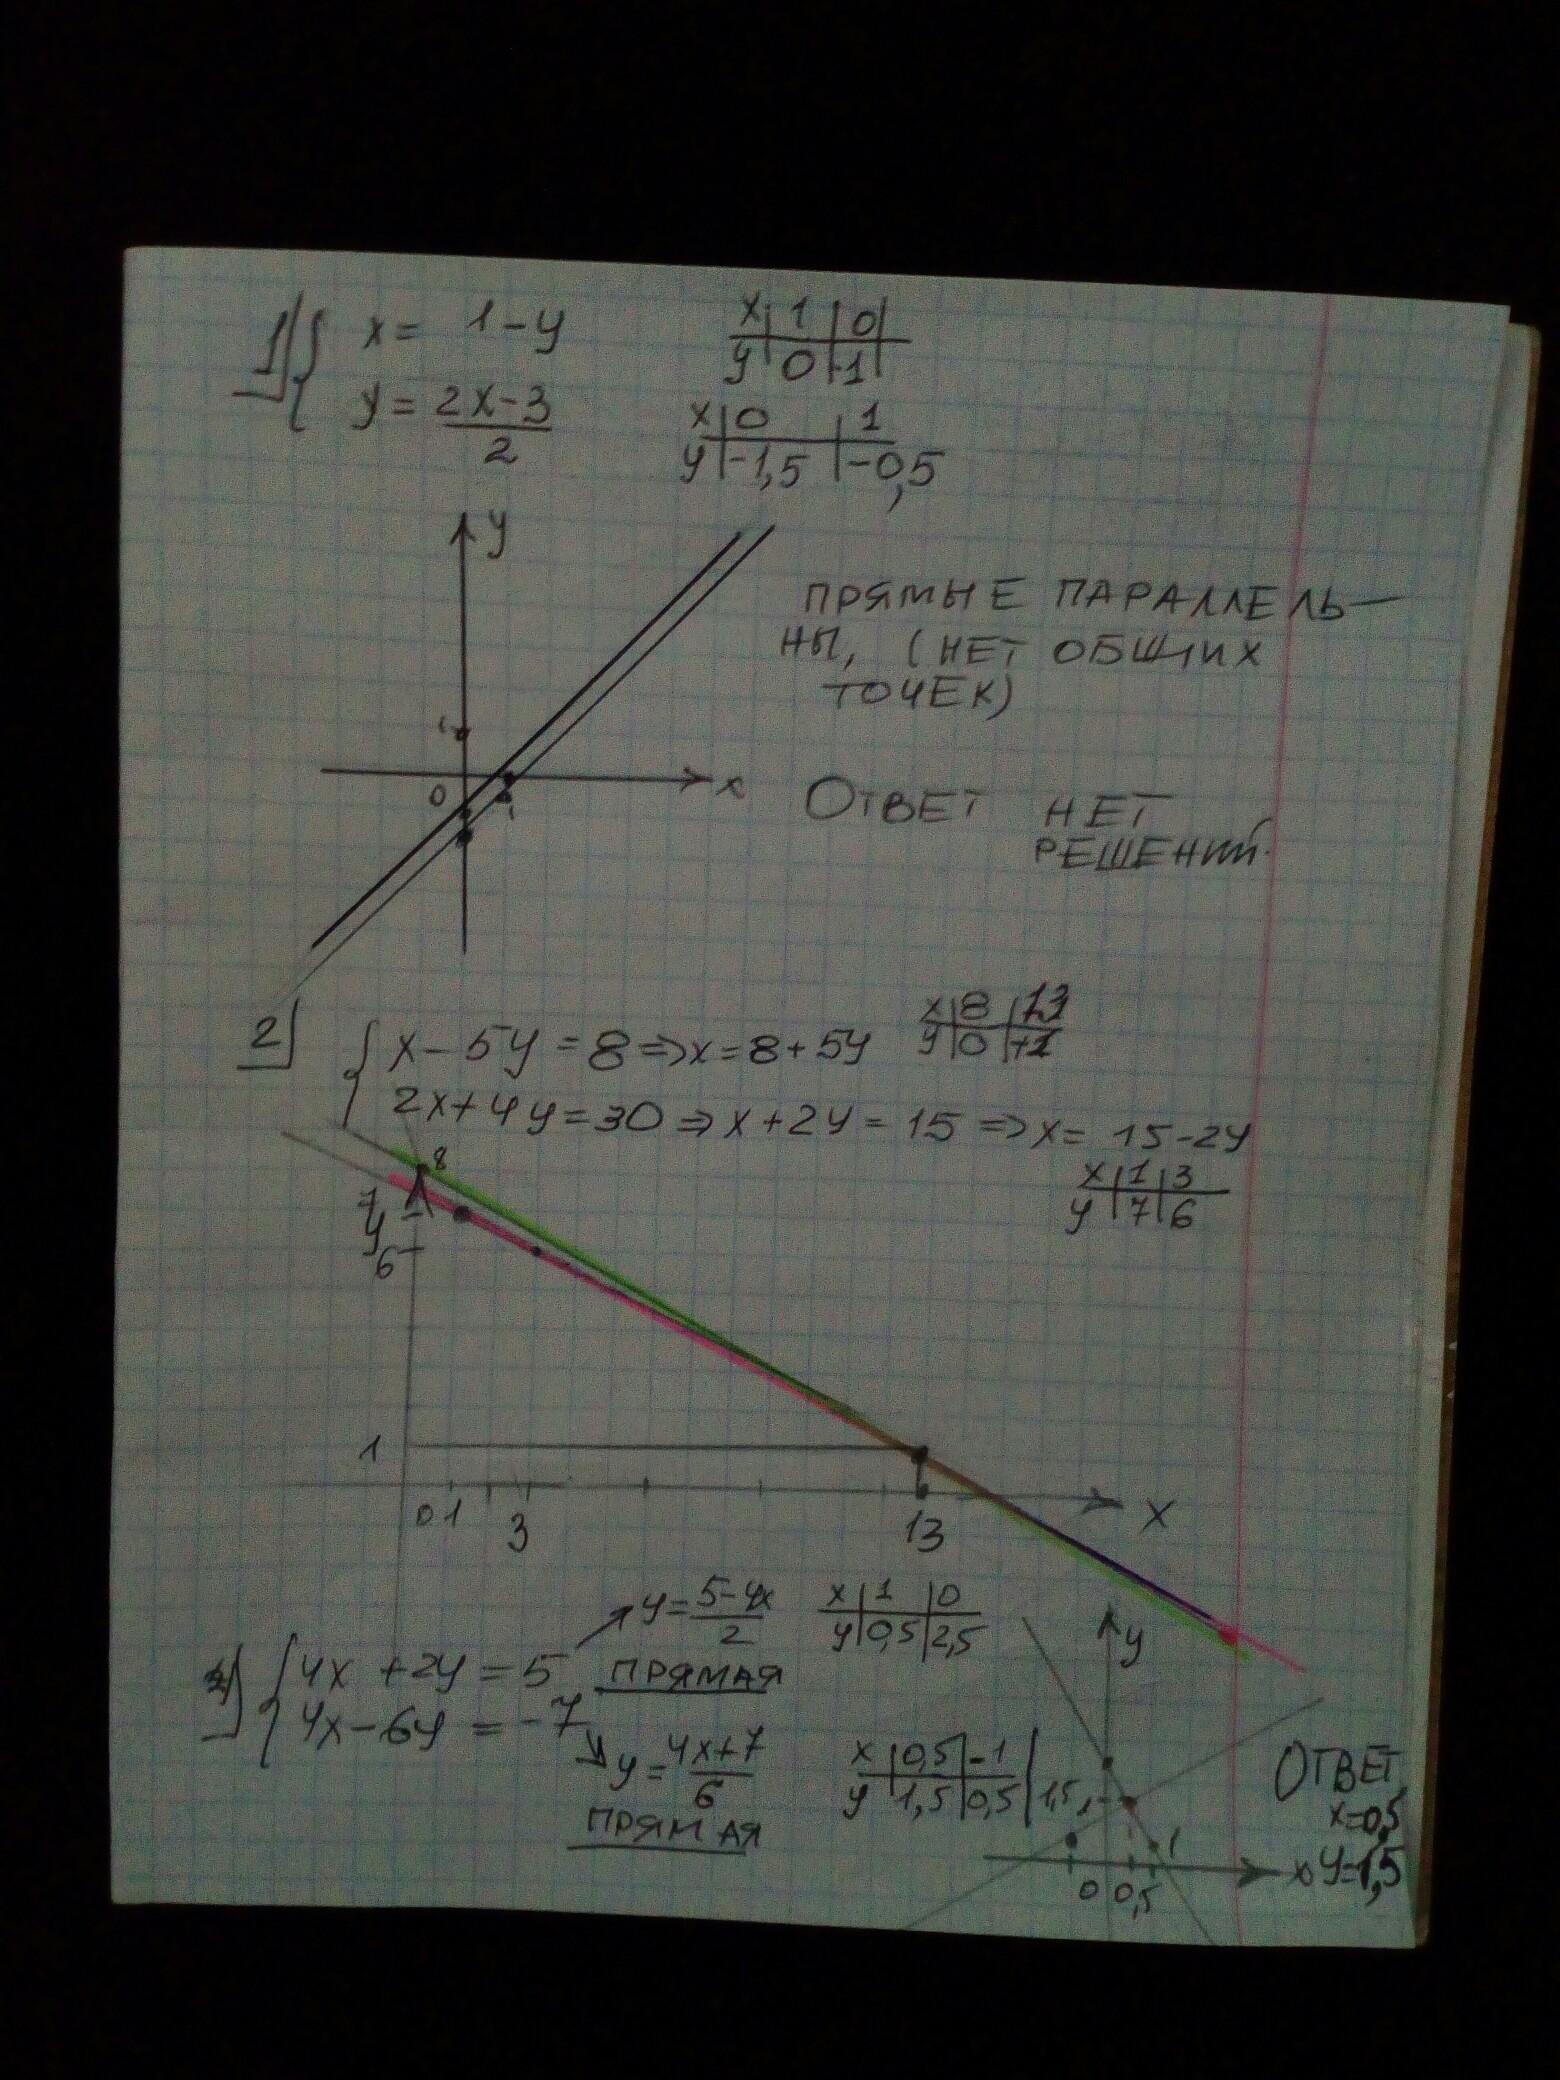 1) { x = 1-y
y = 2x-3 / 2
x | 1 | 0 |
y | 0 | -1 |
x | 0 | 1
y | -1,5 | -0,5
y
1
0
1
x
ПРЯМЫЕ ПАРАЛЛЕЛЬ-
НЫ, (НЕТ ОБЩИХ
ТОЧЕК)
ОТВЕТ НЕТ
РЕШЕНИЙ.
2) { x-5y=8 => x=8+5y
2x+4y=30 => x+2y=15 => x=15-2y
x | 8 | 13
y | 0 | +1
x | 1 | 3
y | 7 | 6
8
7
y
6
1
0 1
3
13
x
{ 4x+2y=5
4x-6y=-7
y = 5-4x / 2
ПРЯМАЯ
x | 1 | 0
y | 0,5 | 2,5
y = 4x+7 / 6
ПРЯМАЯ
x | 0,5 | -1 |
y | 1,5 | 0,5 |
y
1,5
1
0 0,5
x
ОТВЕТ
x=0,5
y=1,5